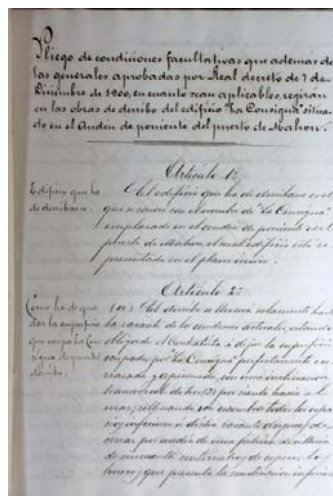 Pliego de condiciones facultativas que además de
las generales aprobadas por Real decreto de 7 de
Diciembre de 1900, en cuanto sean aplicables, regirán
en las obras de derribo del edificio "La Consigna" situa-
do en el Andén de poniente del puerto de Mahon.
Artículo 1º
Edificio que ha
de derribarse.
El edificio que ha de derribarse es el
que se conoce con el nombre de "La Consigna"
emplazado en el andén de poniente del
puerto de Mahon, el cual edificio está re-
presentado en el plano único.
Artículo 2º
Como ha de que-
dar la superficie
que ocupa La Con-
signa después del
derribo.
El derribo se llevará solamente hasta
la rasante de los andenes actuales, estando
obligado el Contratista a dejar la superficie
ocupada por "La Consigna" perfectamente en-
rasada y apisonada, con una inclinación
transversal de tres (3) por ciento hacia el
mar, rellenando con escombros todos los